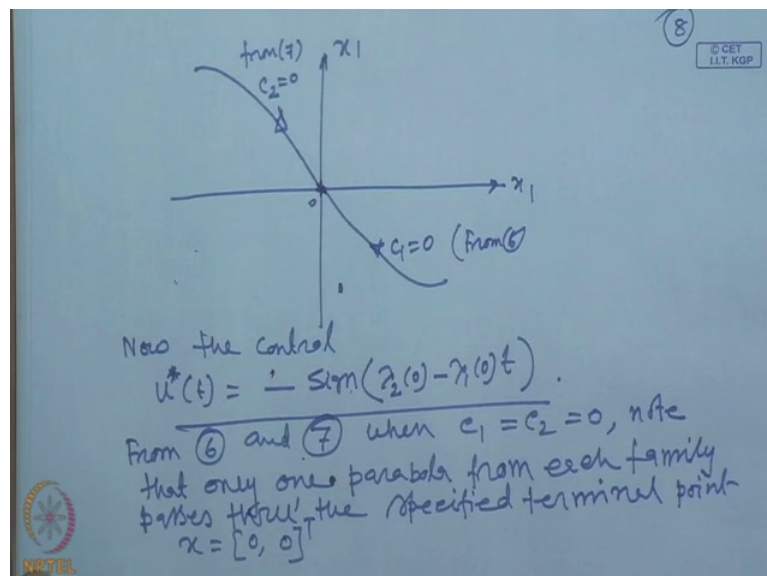 8
© CET
I.I.T. KGP
from(7)
C₂=0
x1
x1
0
C₁=0 (From 6
Now the control
u*(t) = - Sign(λ₂(0)-λ₁(0)t).
From 6 and 7 when C₁ = C₂ = 0, note
that only one parabola from each family
passes thru' the specified terminal point
x = [0, 0]ᵀ
NPTEL